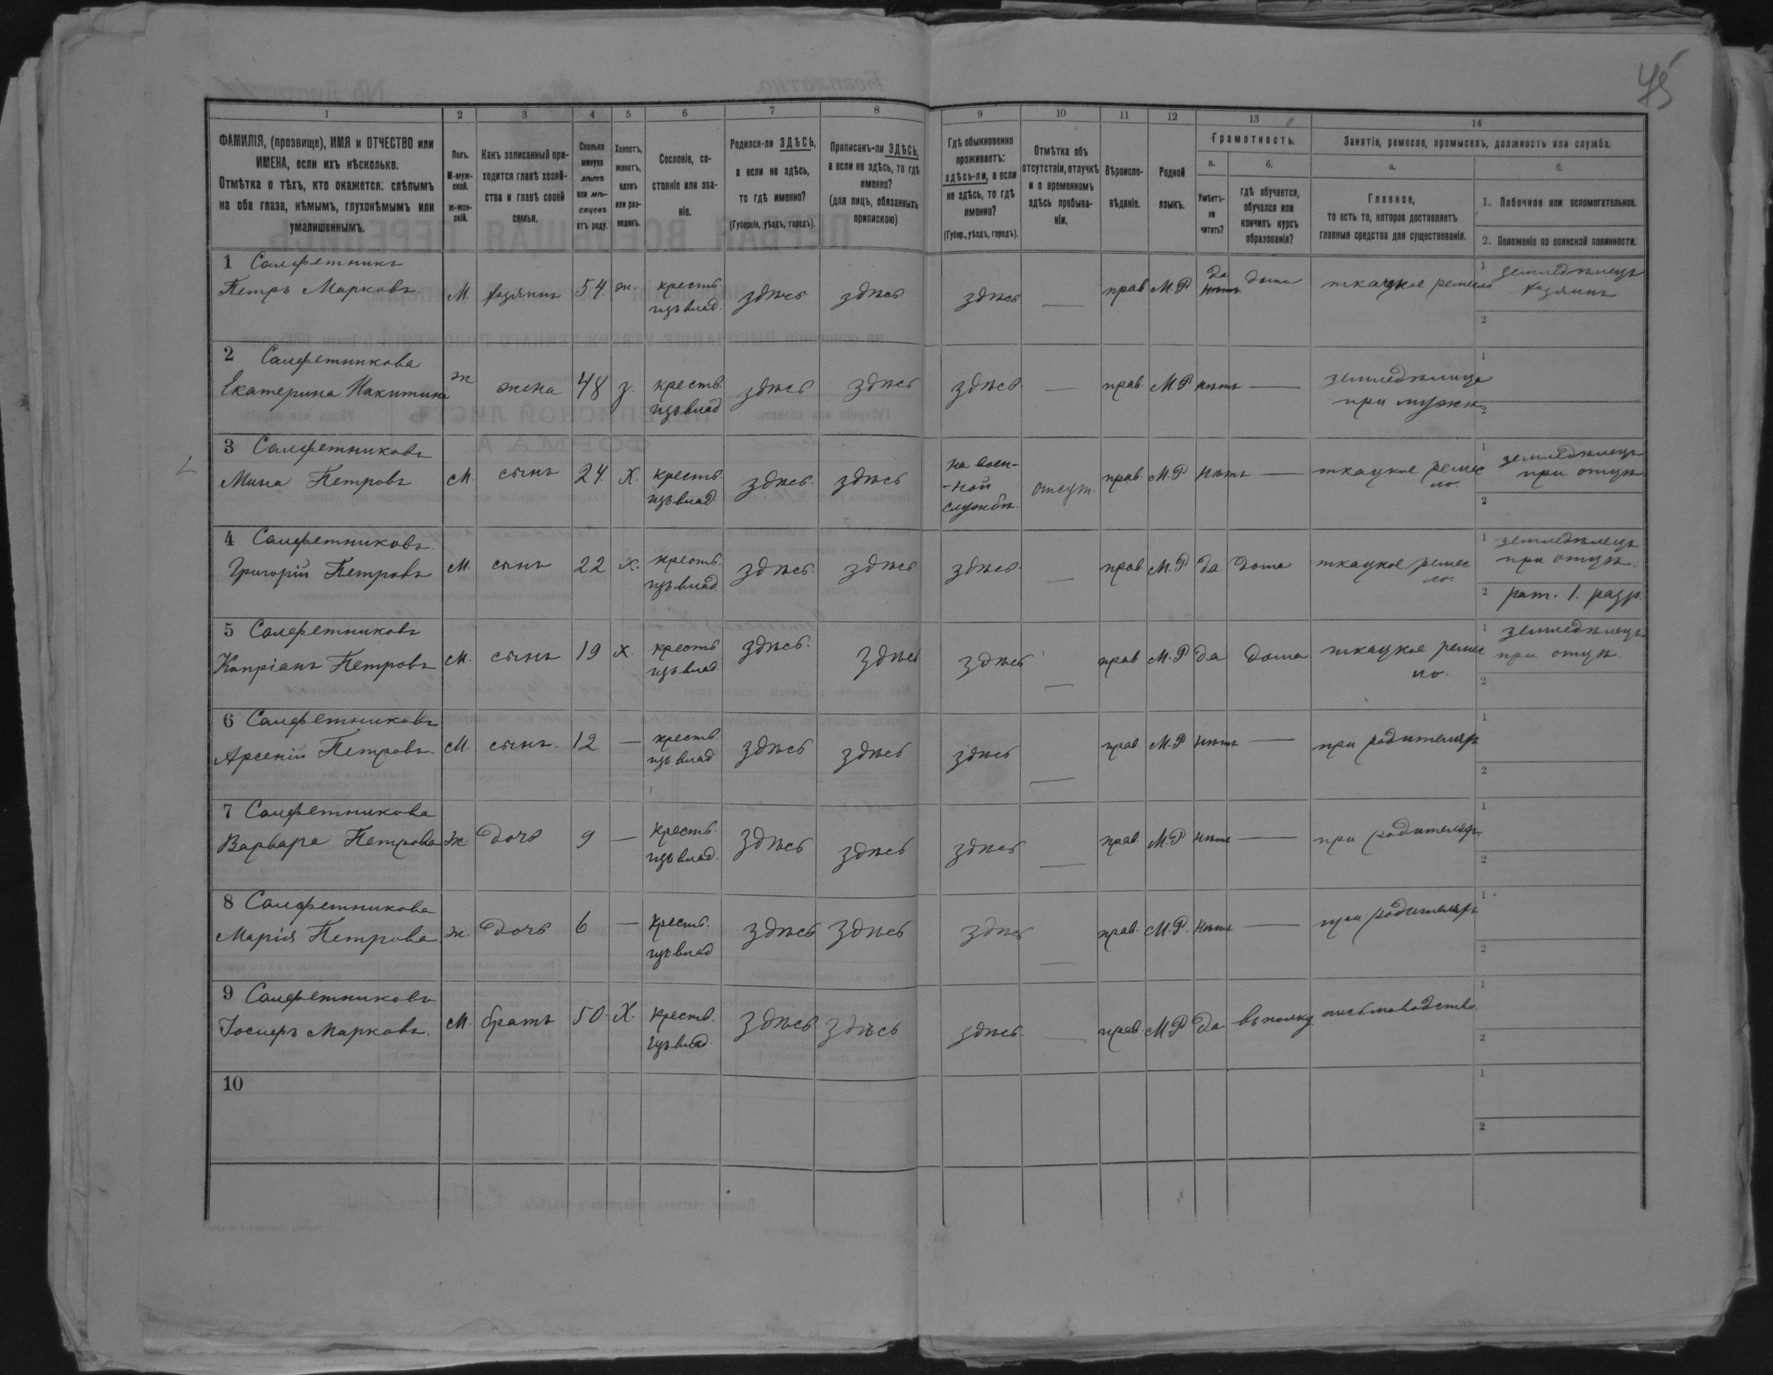 45
1 2 3 4 5 6 7 8 9 10 11 12 13 14
ФАМИЛІЯ, (прозвище), ИМЯ и ОТЧЕСТВО или
ИМЕНА, если ихъ нѣсколько.
Отмѣтка о тѣхъ, кто окажется: слѣпымъ
на оба глаза, нѣмымъ, глухонѣмымъ или
умалишеннымъ.
Полъ.
М-муж-
ской.
Ж-жен-
скій.
Какъ записанный при-
ходится главѣ хозяй-
ства и главѣ своей
семьи.
Сколько
минуло
лѣтъ
или мѣ-
сяцевъ
отъ роду.
Холостъ,
женатъ,
вдовъ
или раз-
веденъ.
Сословіе, со-
стояніе или зва-
ніе.
Родился-ли ЗДѢСЬ,
а если не здѣсь,
то гдѣ именно?
(Губернія, уѣздъ, городъ).
Приписанъ-ли ЗДѢСЬ,
а если не здѣсь, то гдѣ
именно?
(для лицъ, обязанныхъ
припискою)
Гдѣ обыкновенно
проживаетъ:
здѣсь-ли, а если
не здѣсь, то гдѣ
именно?
(Губер., уѣздъ, городъ).
Отмѣтка объ
отсутствіи, отлучкѣ
и о временномъ
здѣсь пребыва-
ніи.
Вѣроиспо-
вѣданіе.
Родной
языкъ.
Грамотность.
а. б.
Умѣетъ-
ли
читать?
гдѣ обучается,
обучался или
кончилъ курсъ
образованія?
Занятіе, ремесло, промыселъ, должность или служба.
а. б.
Главное,
то есть то, которое доставляетъ
главныя средства для существованія.
1. Побочное или вспомогательное.
2. Положеніе по воинской повинности.
1 Салфетникъ
Петръ Марковъ М. хозяинъ 54. ж. крестъ. изъ влад. здѣсь здѣсь здѣсь — прав М.Р да нѣтъ дома ткацкое ремесло 1 земледѣлецъ
хозяинъ
2
2 Салфетникова
Екатерина Никитина ж жена 48 з. крестъ. изъ влад здѣсь здѣсь здѣсь — прав. М.Р нѣтъ — земледѣлица
при мужѣ
1
2
3 Салфетниковъ
Мина Петровъ М сынъ 24. х. крестъ. изъ влад здѣсь. здѣсь на воен-
-ной
службѣ отсут. прав. М.Р нѣтъ — ткацкое ремес
ло.
1 земледѣлецъ
при отцѣ
2
4 Салфетниковъ.
Григорій Петровъ М. сынъ 22 х. крестъ. изъ влад. здѣсь. здѣсь здѣсь — прав М.Р да дома ткацкое ремес
ло.
1 земледѣлецъ
при отцѣ.
2 рат. 1. разр.
5 Салфетниковъ
Кипріанъ Петровъ М. сынъ 19 х. крестъ изъ влад здѣсь. здѣсь здѣсь — прав М.Р да дома ткацкое ремес
ло.
1 земледѣлецъ
при отцѣ.
2
6 Салфетниковъ
Арсеній Петровъ. М. сынъ. 12 — крестъ. изъ влад здѣсь здѣсь здѣсь — прав М.Р нѣтъ — при родителяхъ
1
2
7 Салфетникова
Варвара Петрова ж дочь 9 — крестъ. изъ влад. здѣсь здѣсь здѣсь — прав. М.Р нѣтъ — при родителяхъ
1
2
8 Салфетникова
Марія Петрова ж. дочь 6 — крестъ. изъ влад здѣсь здѣсь здѣсь — прав. М.Р. нѣтъ — при родителяхъ
1
2
9 Салфетниковъ
Іосифъ Марковъ. М. братъ 50. Х. крестъ. изъ влад. здѣсь здѣсь здѣсь. — прав М.Р да въ полку письмоводство
1
2
10
1
2